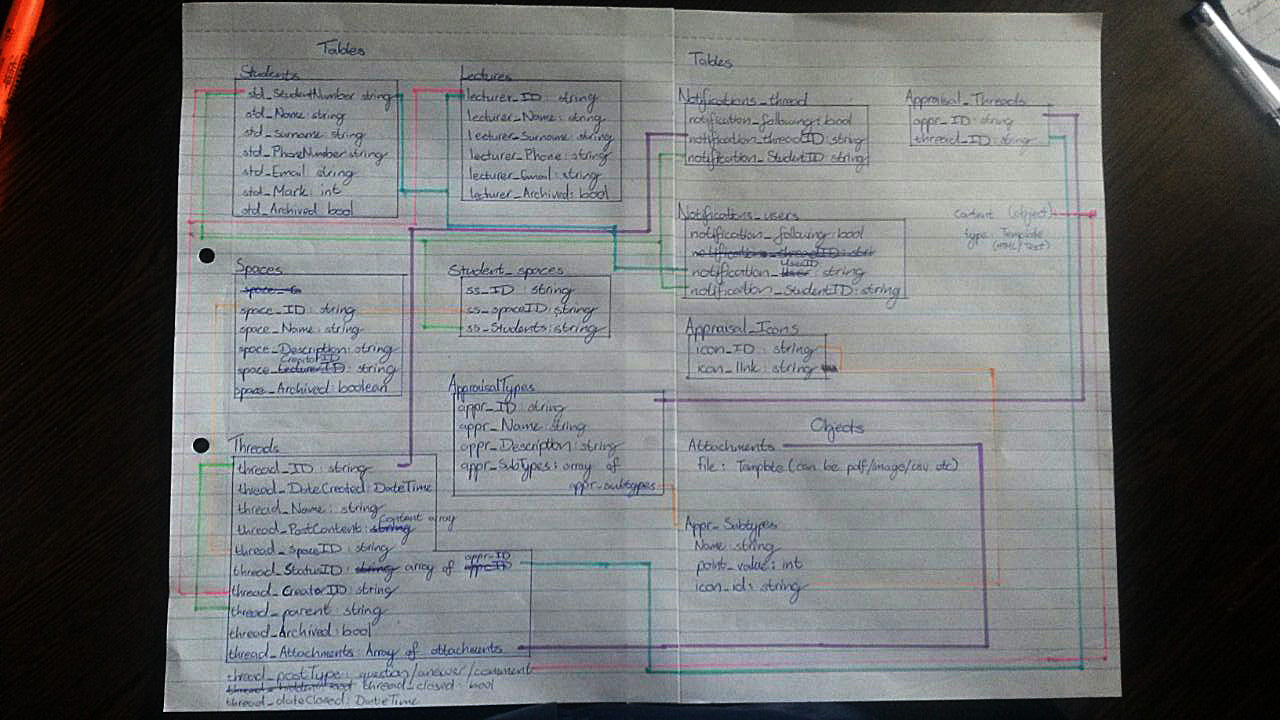 Tables
Students
std_StudentNumber string
std_Name: string
std_Surname: string
std_PhoneNumber string
std_Email string
std_Mark: int
std_Archived bool
Lectures
lecturer_ID: string
lecturer_Name: string
lecturer_Surname: string
lecturer_Phone: string
lecturer_Email: string
lecturer_Archived: bool
Spaces
space_ID: string
space_Name: string
space_Description: string
CreatorID
space_LecturerID: string
space_Archived: boolean
Student_spaces
ss_ID: string
ss_spaceID: string
ss_Students: string
AppraisalTypes
appr_ID: string
appr_Name: string
appr_Description: string
appr_SubTypes: array of
appr_subtypes
Threads
thread_ID: string
thread_DateCreated: DateTime
thread_Name: string
Content array
thread_PostContent: string
thread_SpaceID: string
appr_ID
thread_StatusID: string array of
thread_CreatorID: string
thread_parent: string
thread_Archived: bool
thread_Attachments: Array of attachments
thread_postType: question/answer/comment
thread_closed: bool
thread_dateClosed: DateTime
Tables
Notifications_thread
notification_following: bool
notification_threadID: string
notification_StudentID: string
Appraisal_Threads
appr_ID: string
thread_ID: string
Notifications_users
notification_following: bool
notification_threadID: str
UserID
notification_User: string
notification_StudentID: string
content (object)
type: Template
(HTML/Text)
Appraisal_Icons
icon_ID: string
icon_link: string
Objects
Attachments
file: Template (can be pdf/image/csv etc)
Appr_Subtypes
Name: string
point_value: int
icon_id: string